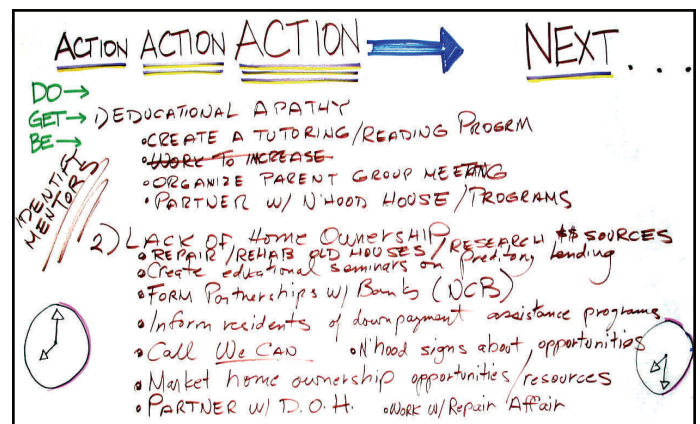 ACTION ACTION ACTION NEXT...
DO→
GET→ 1) EDUCATIONAL APATHY
BE→ •CREATE A TUTORING/READING PROGRM
•WORK TO INCREASE
•ORGANIZE PARENT GROUP MEETING
•PARTNER W/ N'HOOD HOUSE/PROGRAMS
IDENTIFY
MENTORS
2) LACK OF HOME OWNERSHIP
•REPAIR/REHAB OLD HOUSES/RESEARCH $$ SOURCES
•Create educational seminars on preditory lending
•FORM Partnerships W/ Banks (NCB)
•Inform residents of downpayment assistance programs
•Call We CAN •N'hood signs about opportunities
•Market home ownership opportunities/resources
•PARTNER W/ D.O.H. •WORK W/ Repair Affair